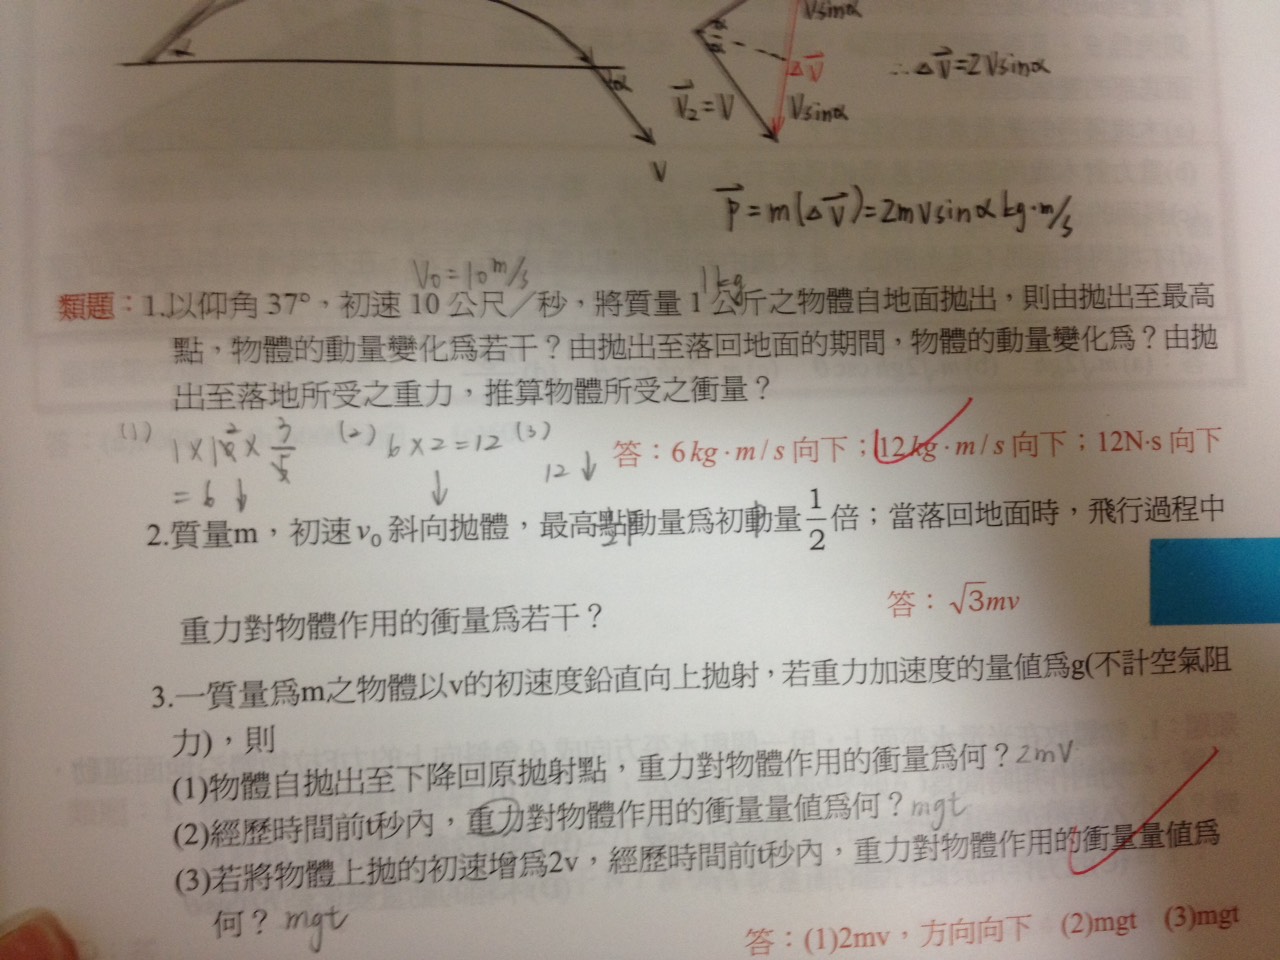 Vsinα
α
α
α
α
ΔV
∴ΔV=2Vsinα
V₂=V
Vsinα
V
P=m(ΔV)=2mVsinα kg·m/s
V₀=10 m/s
1kg
類題：1.以仰角 37°，初速 10 公尺／秒，將質量 1 公斤之物體自地面拋出，則由拋出至最高
點，物體的動量變化為若干？由拋出至落回地面的期間，物體的動量變化為？由拋
出至落地所受之重力，推算物體所受之衝量？
(1) 1×10×3/5 (2) 6×2=12 (3)
2
=6↓ ↓ 12↓
答：6kg·m/s 向下；12kg·m/s 向下；12N·s 向下
2.質量m，初速 v₀ 斜向拋體，最高點動量為初動量 1/2 倍；當落回地面時，飛行過程中
重力對物體作用的衝量為若干？
答：√3mv
3.一質量為m之物體以v的初速度鉛直向上拋射，若重力加速度的量值為g(不計空氣阻
力)，則
(1)物體自拋出至下降回原拋射點，重力對物體作用的衝量為何？2mV
(2)經歷時間前t秒內，重力對物體作用的衝量量值為何？mgt
(3)若將物體上拋的初速增為2v，經歷時間前t秒內，重力對物體作用的衝量量值為
何？mgt
答：(1)2mv，方向向下 (2)mgt (3)mgt